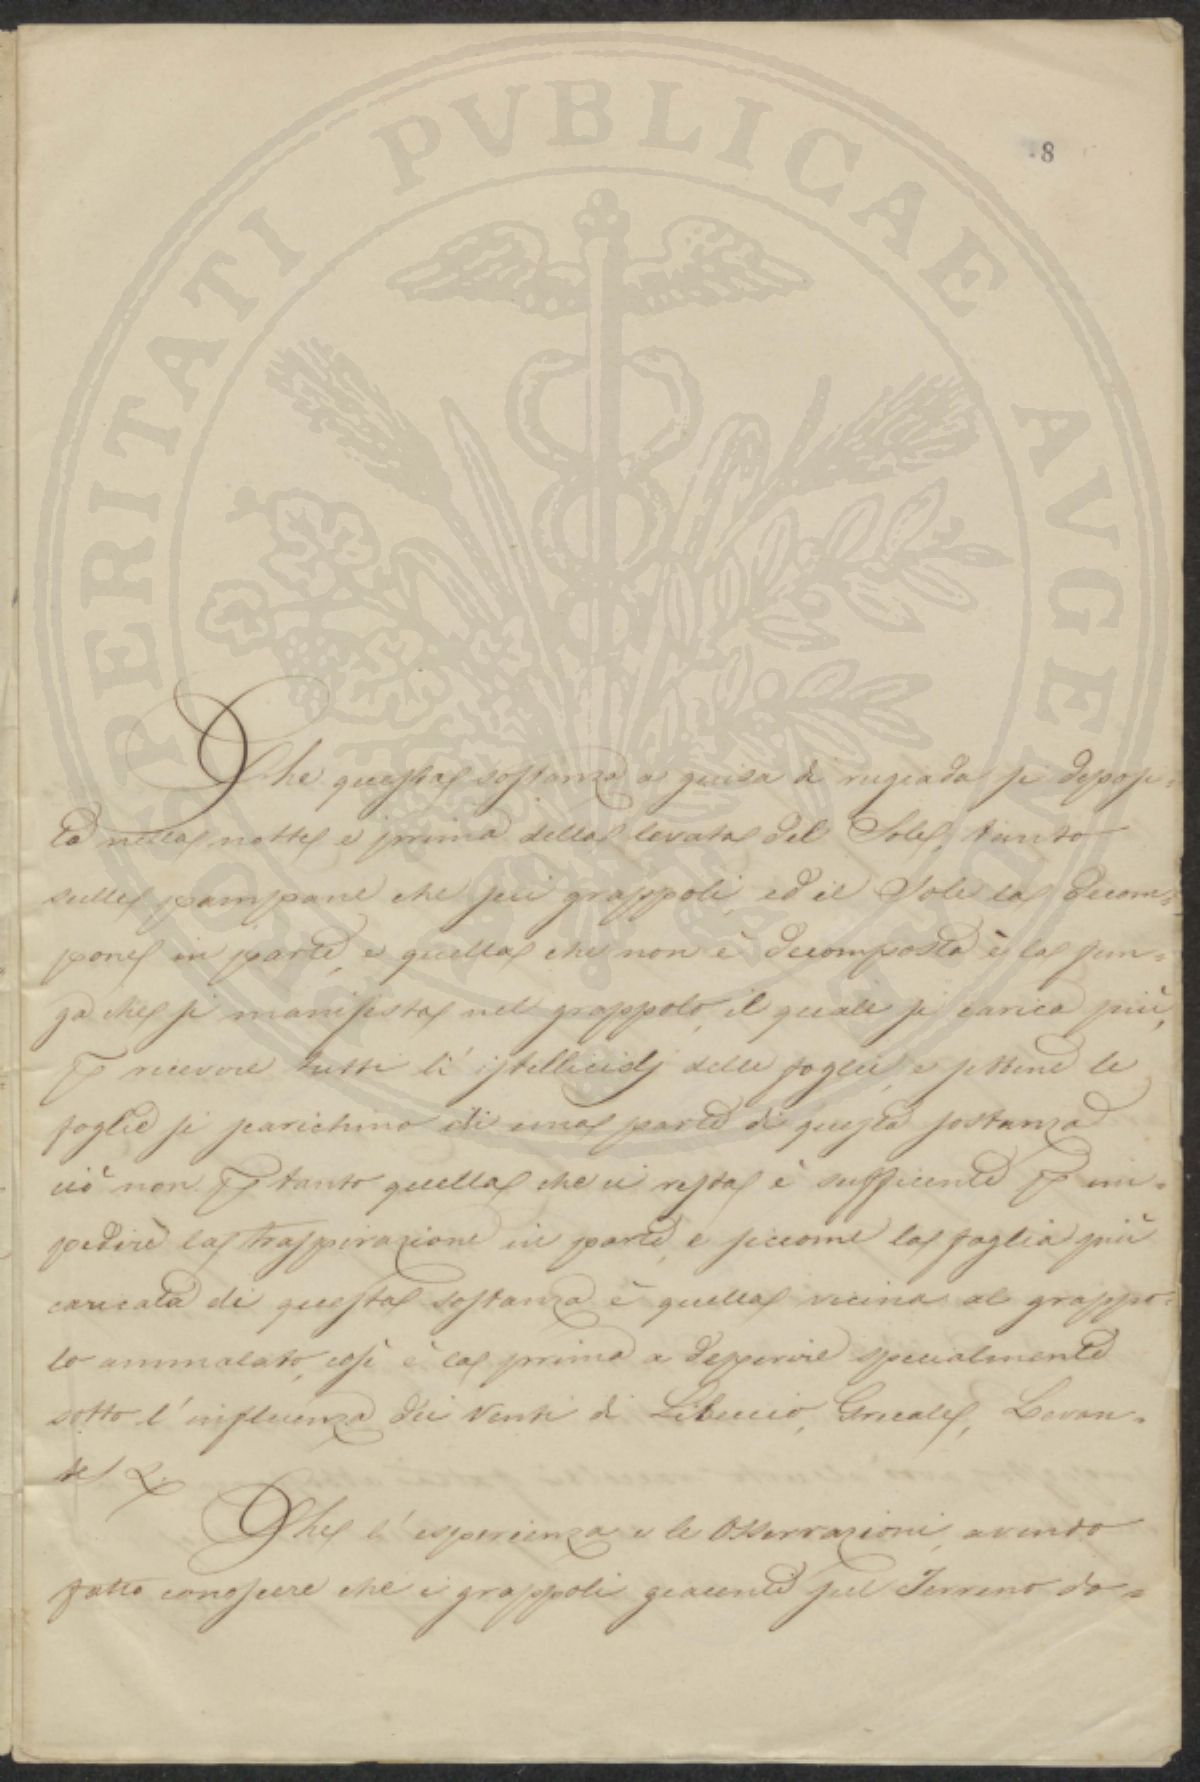 8
PROSPERITATI PVBLICAE AVGENDAE
Che questa sostanza a guisa di rugiada si deposi=
ta nella notte e prima della levata del Sole, tanto
sulle pampane che sui grappoli, ed il Sole la decom=
pone in parte, e quella che non è decomposta è la fun=
ga che si manifesta nel grappolo, il quale si carica più,
p ricevere tutti li istellicidj delle foglie, e sebbene le
foglie si scarichino di una parte di questa sostanza
ciò non p tanto quella che ci resta è sufficiente p im=
pedire la traspirazione in parte, e siccome la foglia più
caricata di questa sostanza è quella vicina al grappo=
lo ammalato, così è la prima a deperire specialmente
sotto l'influenza dei Venti di Libeccio, Grecale, Levan=
te &.
Che l'esperienza e le Osservazioni, avendo
fatto conoscere che i grappoli giacenti sul Terreno do=